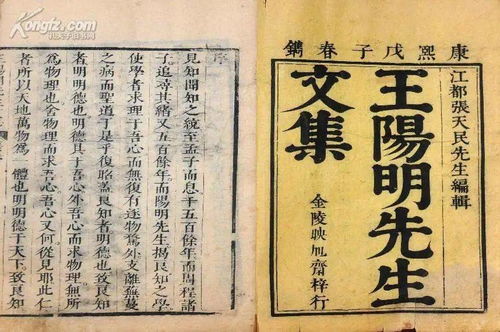 Kongfz.com
孔夫子旧书网
康熙戊子春鐫
江都張天民先生編輯
王陽明先生
文集
金陵映旭齋梓行
序
見知聞知之統至孟子而息千五百餘年而周程諸
子追尋其緒又五百餘年而陽明先生揭良知之學
使學者求理于吾心而無復有逐物騖外支離蕪蔓
之病而聖道于是乎復昭蓋良知者明德也致良知
者明明德也明德具于吾心外吾心而求物理無所
為物理也舍物理而求吾心吾心又何從見耶此仁
者所以天地萬物為 體也明明德于天下致良知